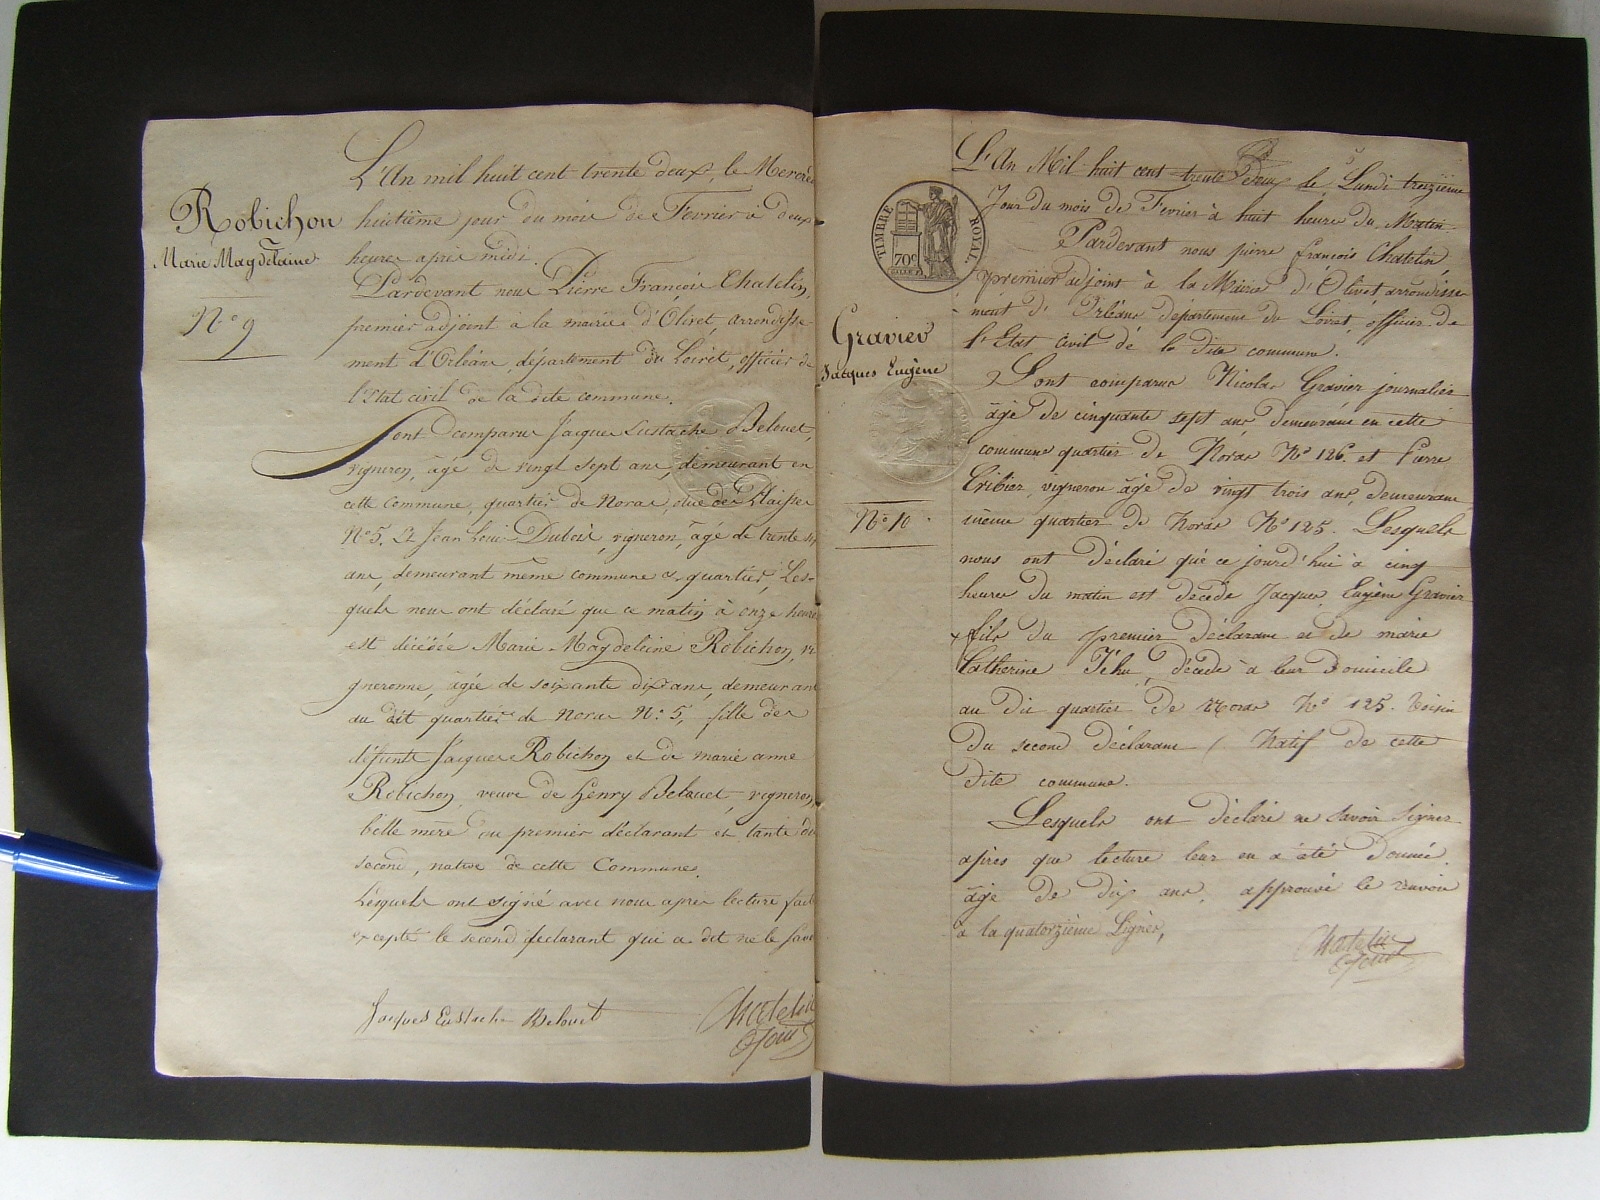 Robichon
Marie Magdelaine
N.o 9
L'An mil huit cent trente deux, le Mercredi
huitième jour du mois de Fevrier à deux
heures après midi.
Pardevant nous Pierre François Chatelin,
premier adjoint à la mairie d'Olivet, arrondisse-
ment d'Orléans, département du Loiret, officier de
l'Etat civil de la dite commune.
Sont comparus Jacques Eustache Belouet,
vigneron, âgé de vingt sept ans, demeurant en
cette Commune, quartier de Noras, rue des
N.o 5. Et Jean Louis Dubois, vigneron, âgé de trente
ans, demeurant même commune & quartier, Les-
quels nous ont déclaré que ce matin à onze heures
est décédée Marie Magdeleine Robichon, vi
gneronne, âgée de soixante dix ans, demeurant
au dit quartier de Noras N.o 5, fille des
défunts Jacques Robichon et de marie anne
Robichon, veuve de henry Belouet, vigneron,
belle mère au premier déclarant et tante du
second, native de cette Commune.
Lesquels ont signé avec nous après lecture faite
excepté le second déclarant qui a dit ne le savoir
Jacques Eustache Belouet
Chatelin
adjoint
TIMBRE ROYAL
70c
Gravier
Jacques Eugène
N.o 10
L'An Mil huit cent trente deux le Lundi treizième
Jour du mois de Fevrier à huit heures du Matin.
Pardevant nous pierre françois Chatelin
premier adjoint à la Mairie d'Olivet arrondisse-
ment d'Orléans département du Loiret, officier de
l'Etat civil de la dite commune.
Sont comparus Nicolas Gravier journalier
âgé de cinquante sept ans, demeurant en cette
commune quartier de Noras N.o 126. et Pierre
vigneron âgé de vingt trois ans, demeurant
même quartier de Noras N.o 125. Lesquels
nous ont déclaré que ce jourd'hui à cinq
heures du matin est décédé Jacques Eugène Gravier
fils du premier déclarant et de marie
Catherine Jéhu, décédé à leur domicile
au dit quartier de Noras N.o 125. Voisin
du second déclarant / Natif de cette
dite commune.
Lesquels ont déclaré ne savoir signer
après que lecture leur en a été donnée.
âgé de dix ans. approuvé le renvoi
à la quatorzième Ligne,
Chatelin
adjoint